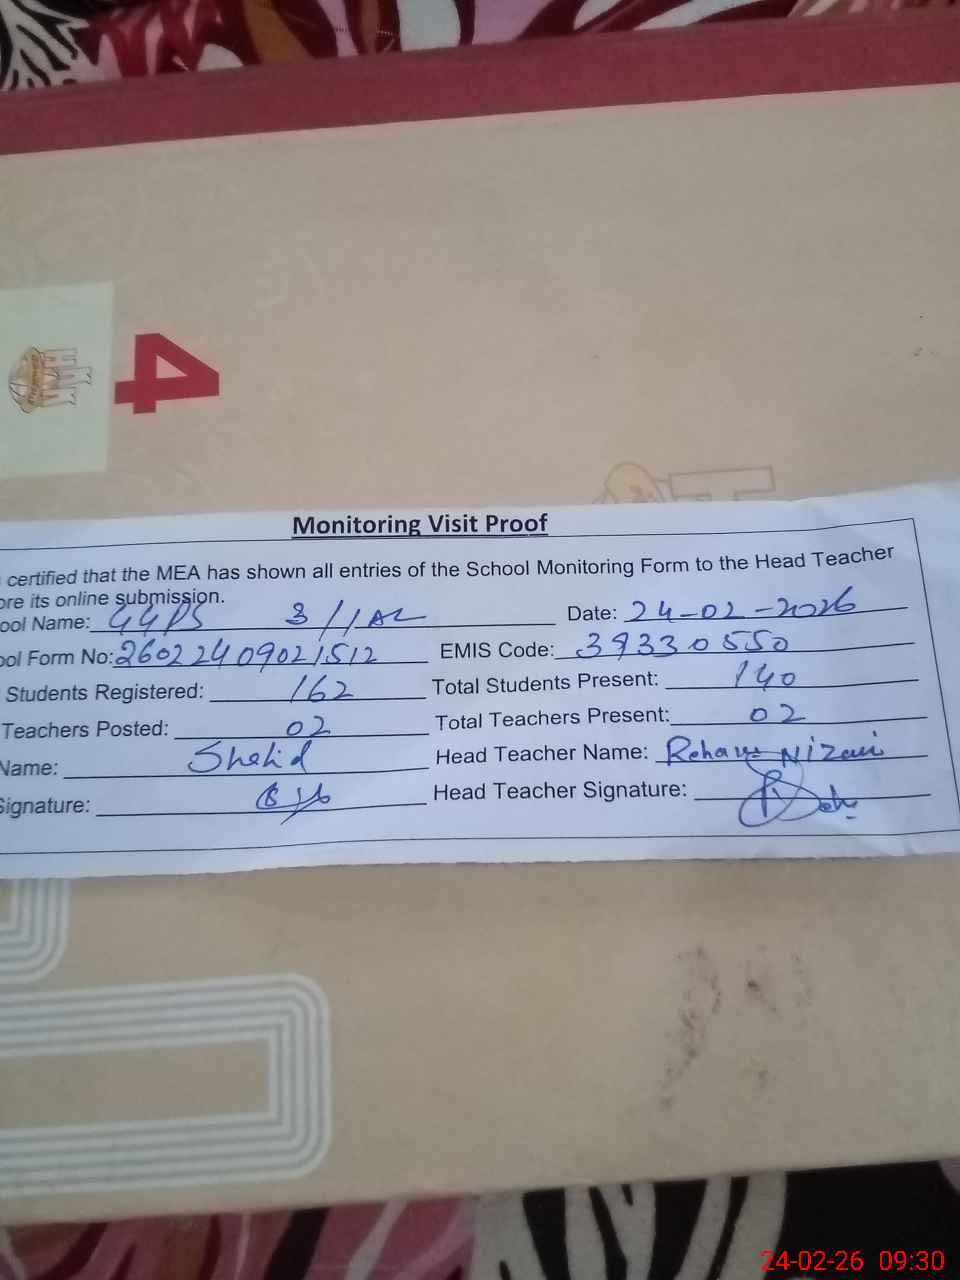 4
Monitoring Visit Proof
certified that the MEA has shown all entries of the School Monitoring Form to the Head Teacher
ore its online submission.
ool Name: GGPS 3/1AL Date: 24-02-2026
ool Form No: 26022409021512 EMIS Code: 39330550
Students Registered: 162 Total Students Present: 140
Teachers Posted: 02 Total Teachers Present: 02
Name: Shahid Head Teacher Name: Nizami
Signature: Head Teacher Signature:
24-02-26 09:30